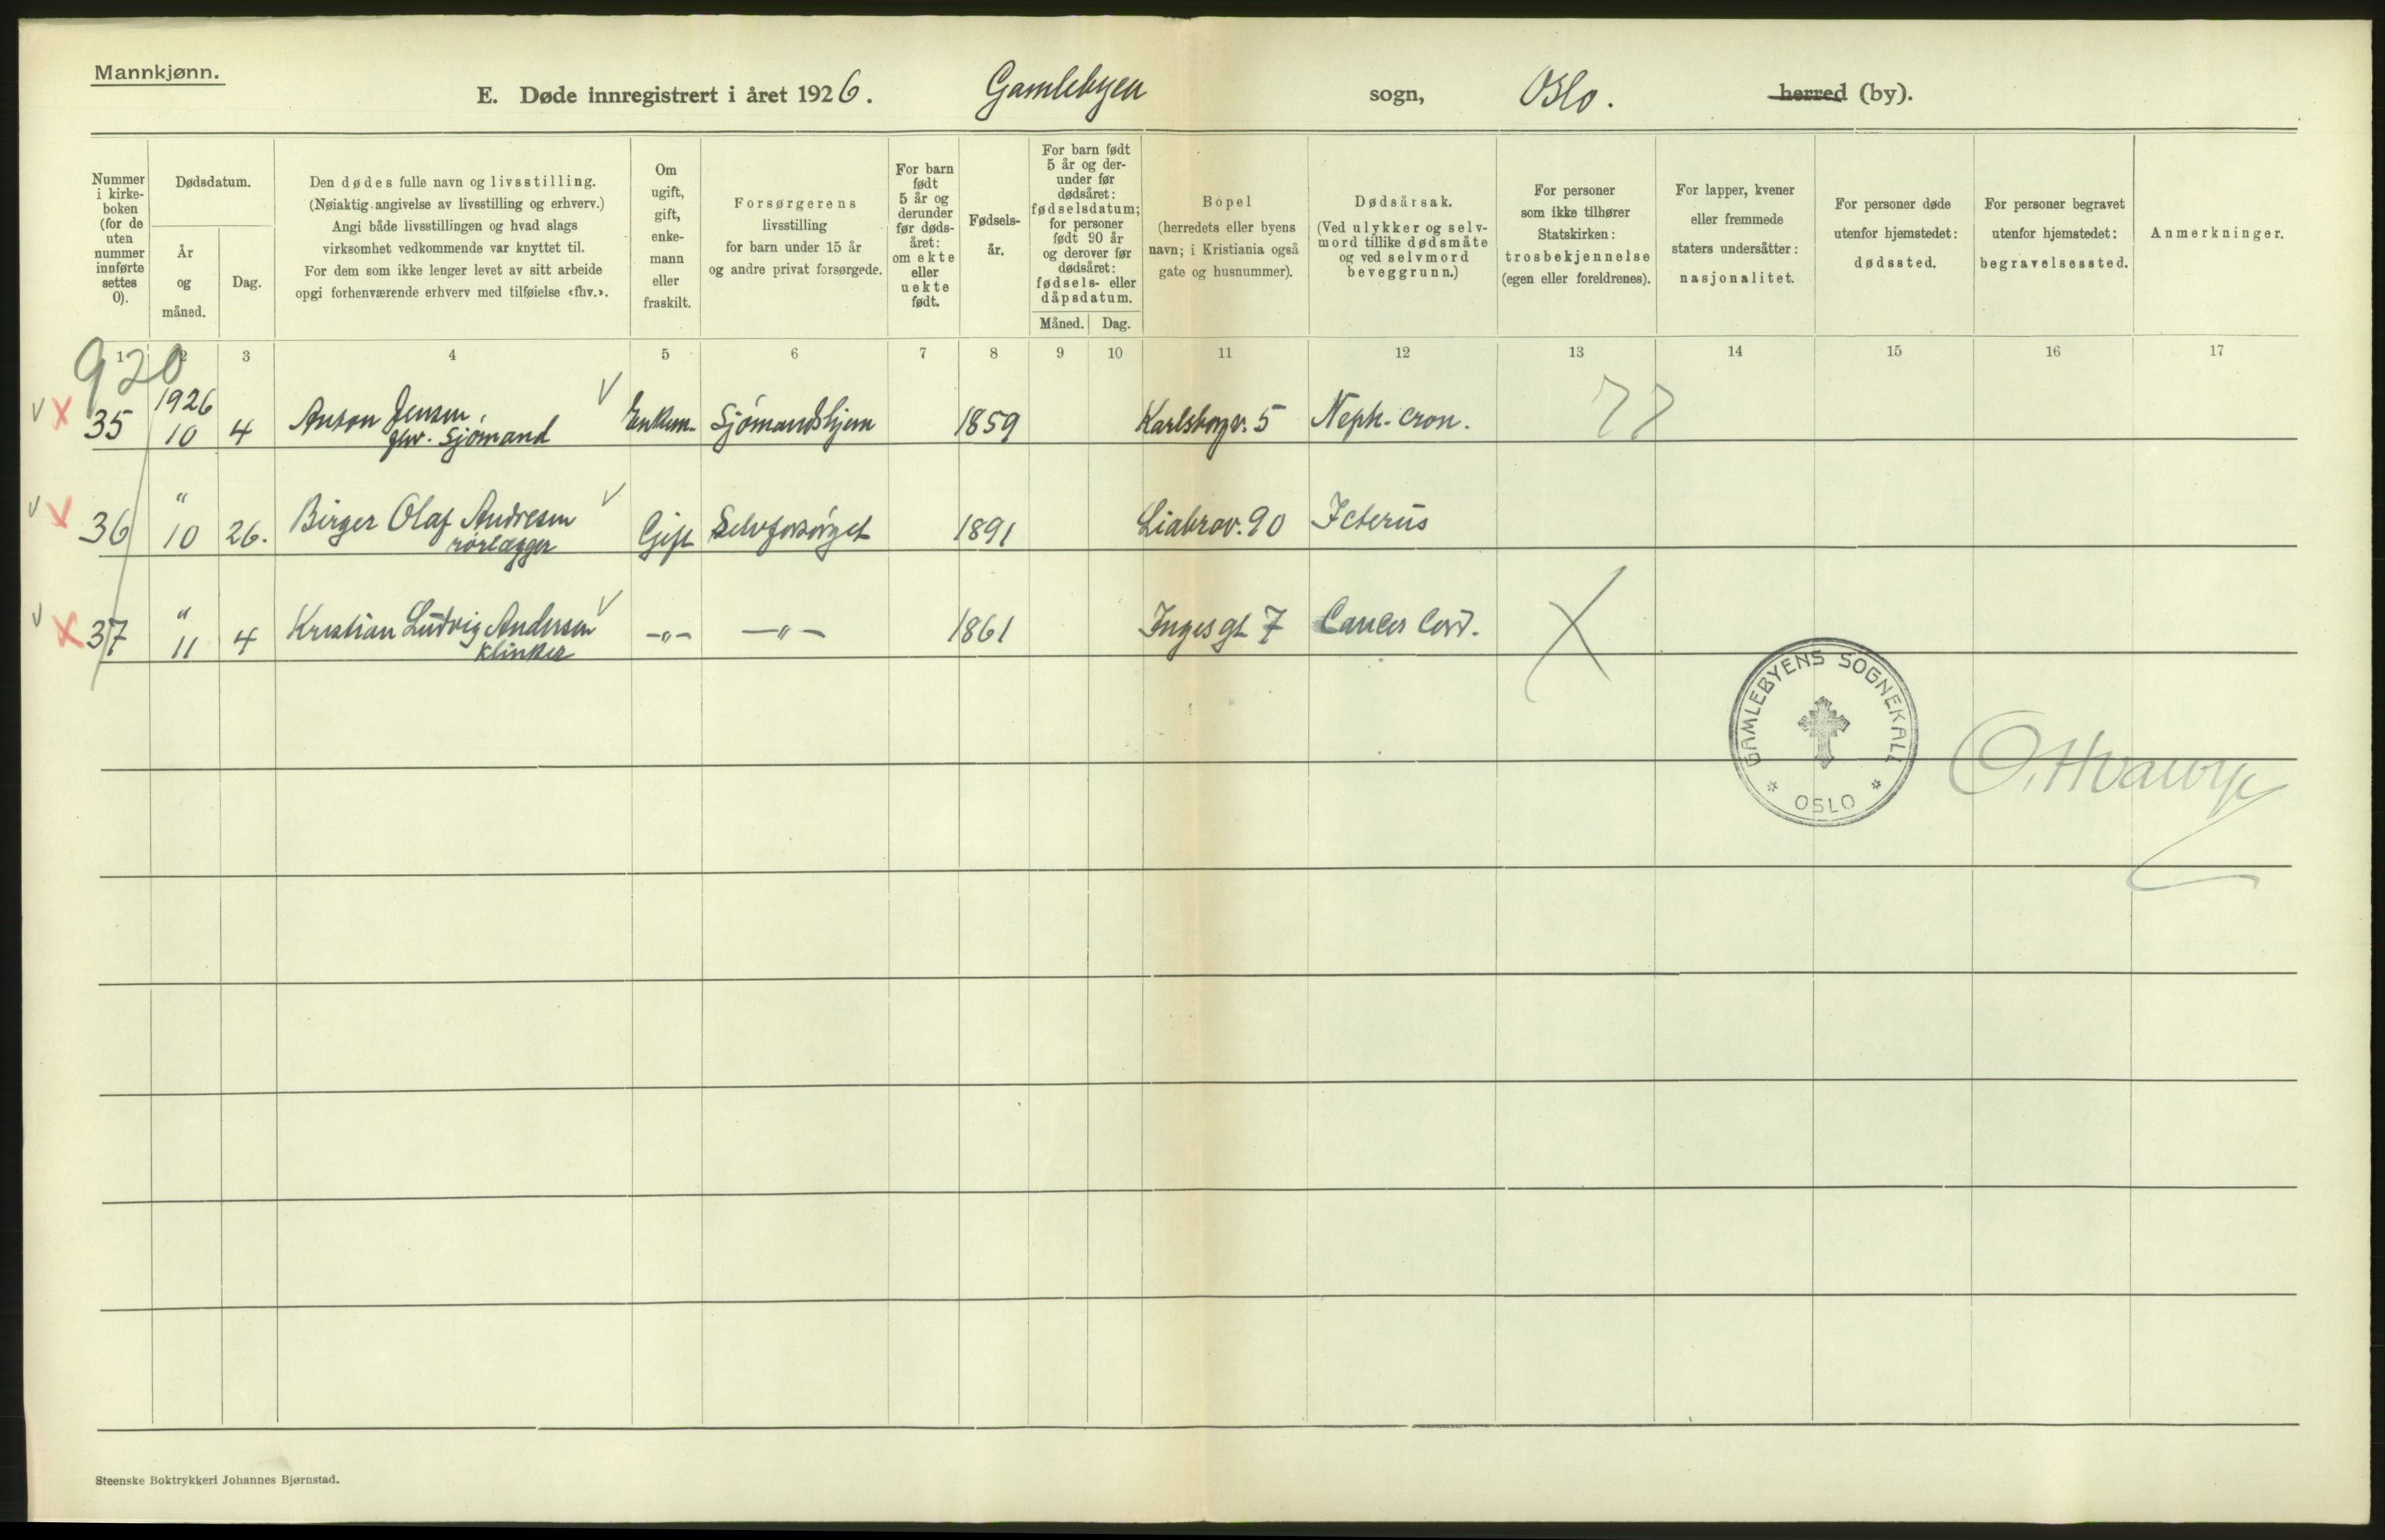 Mannkjønn.
E. Døde innregistrert i året 1926. Gamlebyen sogn, Oslo. herred (by).
Nummer
i kirke-
boken
(for de
uten
nummer
innførte
settes
0).
Dødsdatum.
År
og
måned.
Dag.
Den dødes fulle navn og livsstilling.
(Nøiaktig angivelse av livsstilling og erhverv.)
Angi både livsstillingen og hvad slags
virksomhet vedkommende var knyttet til.
For dem som ikke lenger levet av sitt arbeide
opgi forhenværende erhverv med tilføielse «fhv.».
Om
ugift,
gift,
enke-
mann
eller
fraskilt.
Forsørgerens
livsstilling
for barn under 15 år
og andre privat forsørgede.
For barn
født
5 år og
derunder
før døds-
året:
om ekte
eller
uekte
født.
Fødsels-
år.
For barn født
5 år og der-
under før
dødsåret:
fødselsdatum;
for personer
født 90 år
og derover før
dødsåret:
fødsels- eller
dåpsdatum.
Måned. Dag.
Bopel
(herredets eller byens
navn; i Kristiania også
gate og husnummer).
Dødsårsak.
(Ved ulykker og selv-
mord tillike dødsmåte
og ved selvmord
beveggrunn.)
For personer
som ikke tilhører
Statskirken:
trosbekjennelse
(egen eller foreldrenes).
For lapper, kvener
eller fremmede
staters undersåtter:
nasjonalitet.
For personer døde
utenfor hjemstedet:
dødssted.
For personer begravet
utenfor hjemstedet:
begravelsessted.
Anmerkninger.
1 2 3 4 5 6 7 8 9 10 11 12 13 14 15 16 17
920
1926
35 10 4 Anton Jensen, Enkem. Sjømandshjem 1859 Karlsborgv. 5 Neph. cron. 77
sjømand
"
36 10 26. Birger Olaf Andresen Gift Selvforsørget 1891 Liabrov. 90 Icterus
rørlægger
"
37 11 4 Kristian Ludvig Andersen -"- -"- 1861 Inges gt 7 Cancer
Klinker
GAMLEBYENS SOGNEKALL
* OSLO *
Steenske Boktrykkeri Johannes Bjørnstad.